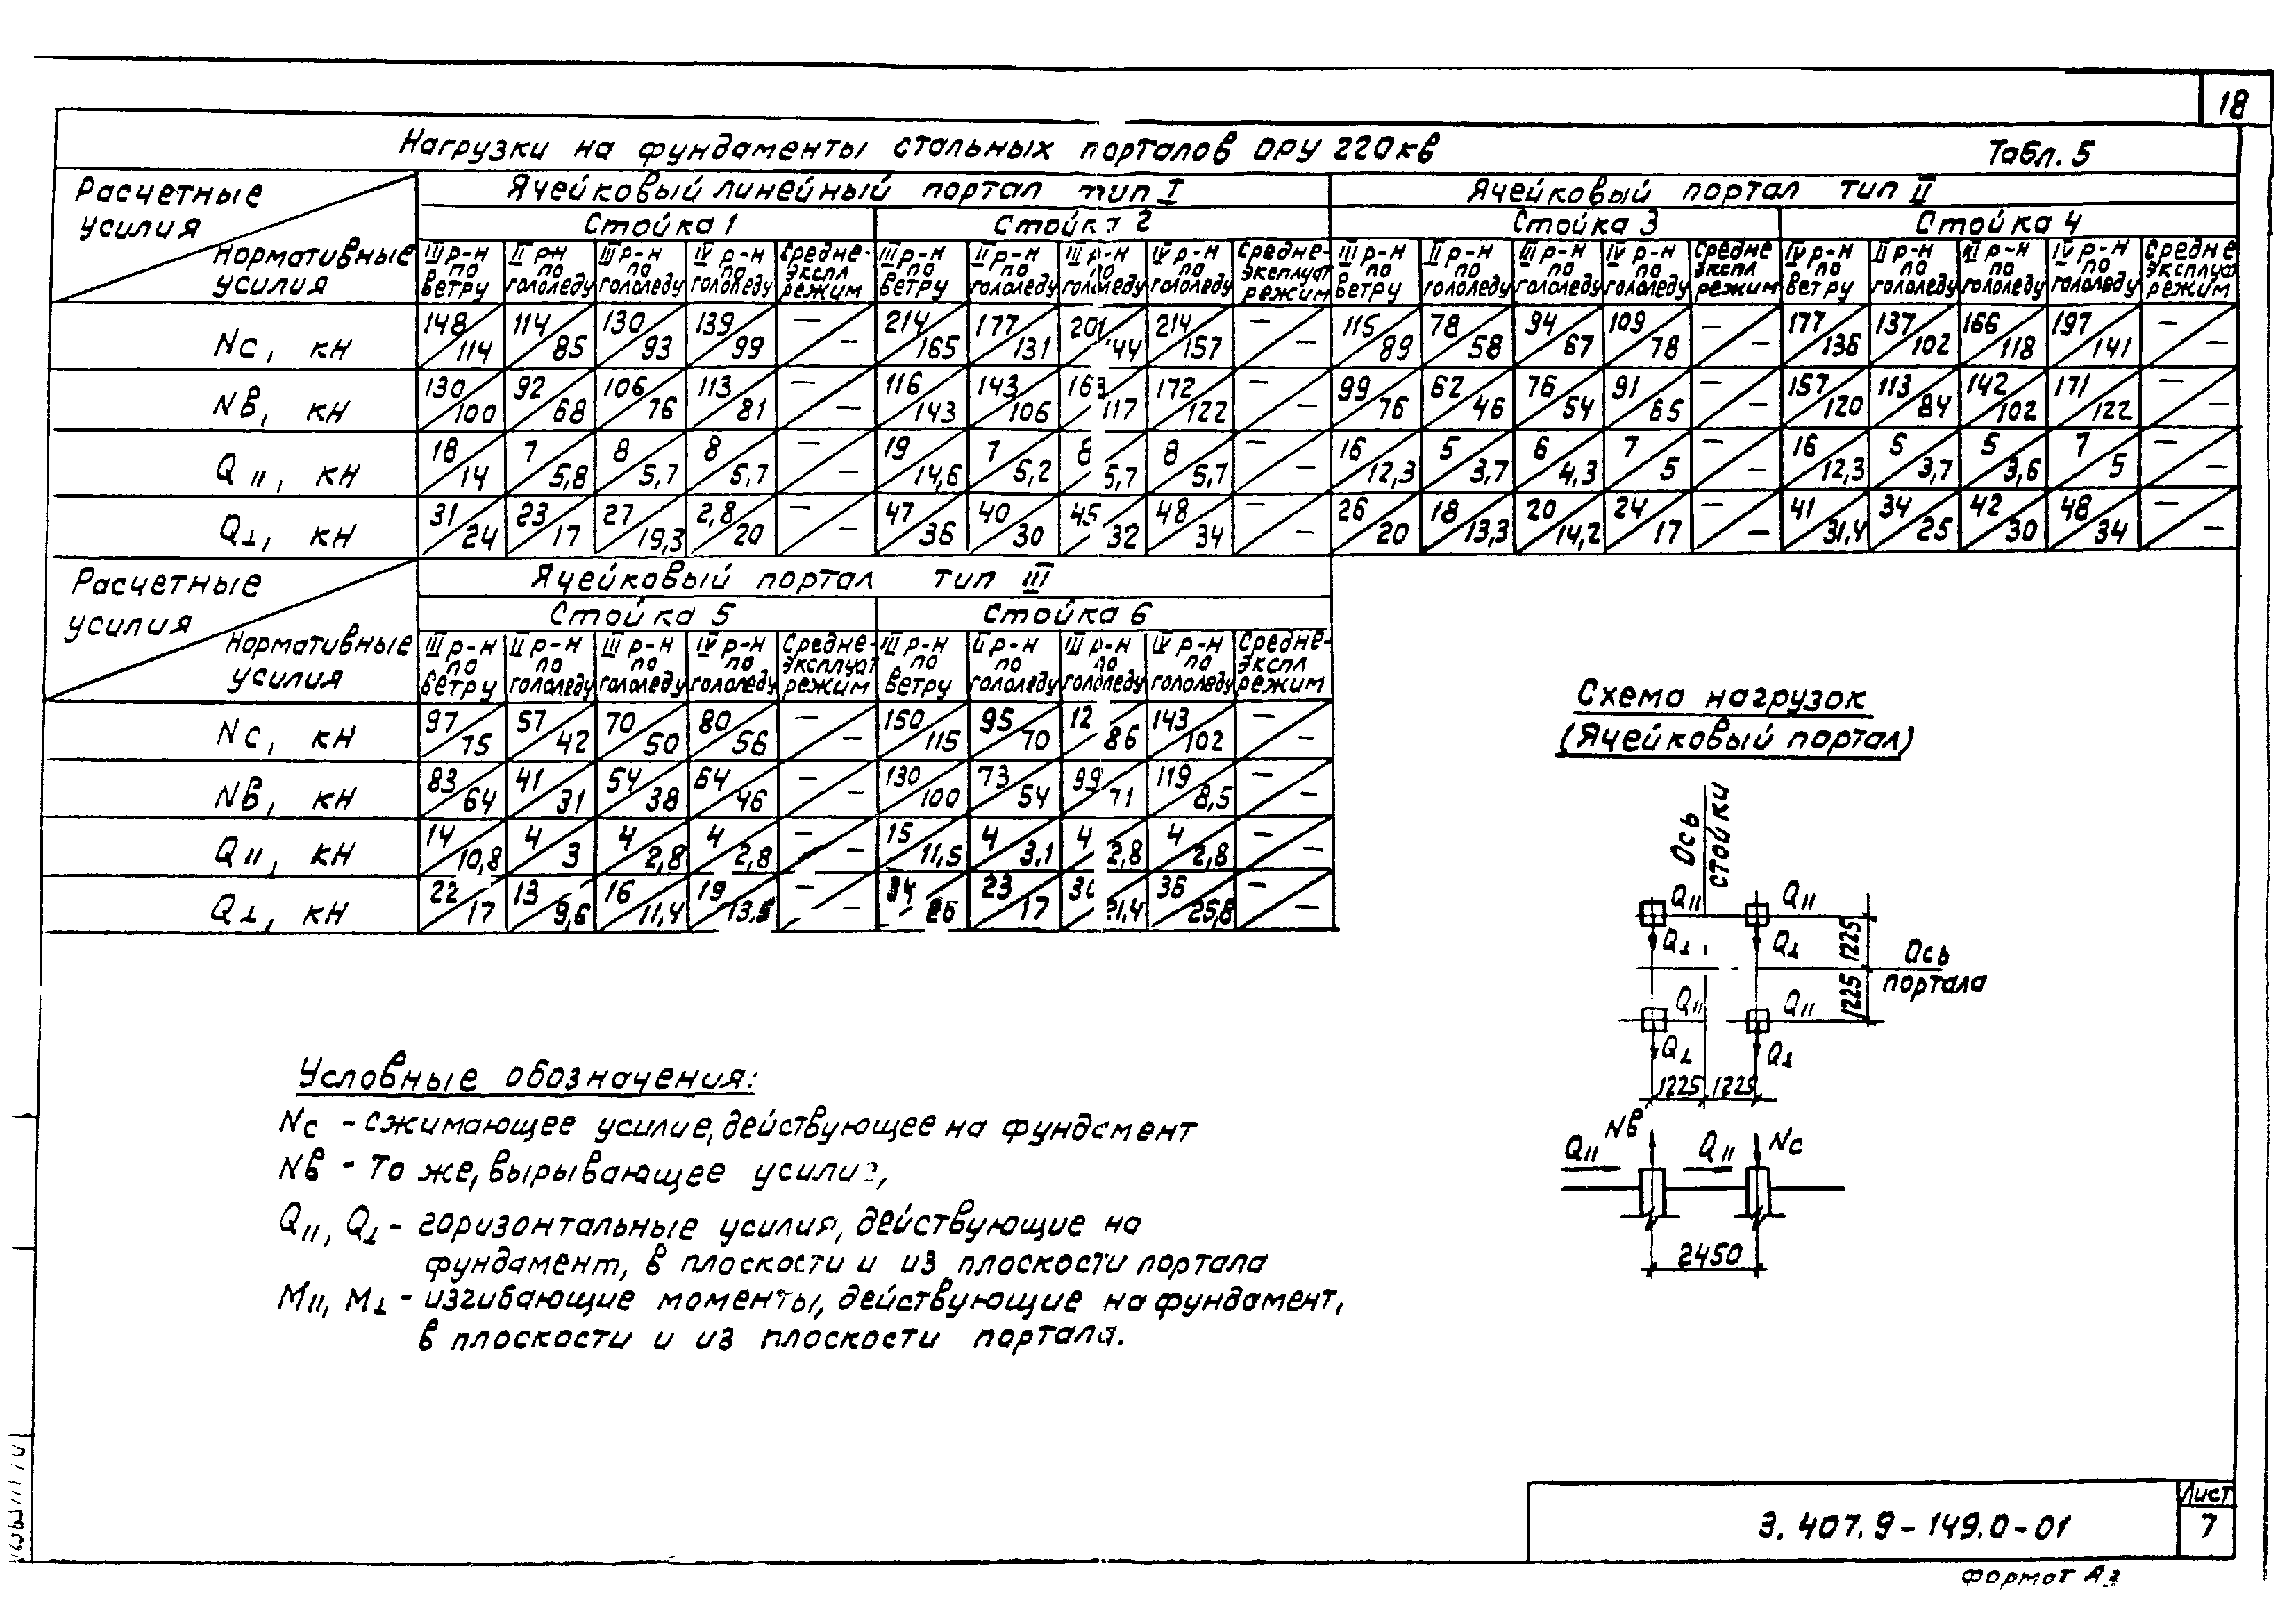 18
Нагрузки на фундаменты стальных порталов ОРУ 220кв Табл. 5
Расчетные усилия Нормативные усилия
Ячейковый линейный портал тип I Ячейковый портал тип II
Стойка 1 Стойка 2 Стойка 3 Стойка 4
III р-н по ветру II р-н по гололеду III р-н по гололеду IV р-н по гололеду Средне-экспл режим III р-н по ветру II р-н по гололеду III р-н по гололеду IV р-н по гололеду Средне-эксплуат режим III р-н по ветру II р-н по гололеду III р-н по гололеду IV р-н по гололеду Средне экспл режим IV р-н по ветру II р-н по гололеду III р-н по гололеду IV р-н по гололеду Средне эксплуат режим
Nс, кН 148/114 114/85 130/93 139/99 –/– 214/165 177/131 201/144 214/157 –/– 115/89 78/58 94/67 109/78 –/– 177/136 137/102 166/118 197/141 –/–
Nв, кН 130/100 92/68 106/76 113/81 –/– 116/143 143/106 163/117 172/122 –/– 99/76 62/46 76/54 91/65 –/– 157/120 113/84 142/102 171/122 –/–
Q॥, кН 18/14 7/5,8 8/5,7 8/5,7 –/– 19/14,6 7/5,2 8/5,7 8/5,7 –/– 16/12,3 5/3,7 6/4,3 7/5 –/– 16/12,3 5/3,7 5/3,6 7/5 –/–
Q⊥, кН 31/24 23/17 27/19,3 2,8/20 –/– 47/36 40/30 45/32 48/34 –/– 26/20 18/13,3 20/14,2 24/17 –/– 41/31,4 34/25 42/30 48/34 –/–
Расчетные усилия Нормативные усилия
Ячейковый портал тип III
Стойка 5 Стойка 6
III р-н по ветру II р-н по гололеду III р-н по гололеду IV р-н по гололеду Средне-эксплуат режим III р-н по ветру II р-н по гололеду III р-н по гололеду IV р-н по гололеду Средне-экспл режим
Nс, кН 97/75 57/42 70/50 80/56 –/– 150/115 95/70 12/86 143/102 –/–
Nв, кН 83/64 41/31 54/38 64/46 –/– 130/100 73/54 99/71 119/8,5 –/–
Q॥, кН 14/10,8 4/3 4/2,8 4/2,8 –/– 15/11,5 4/3,1 4/2,8 4/2,8 –/–
Q⊥, кН 22/17 13/9,6 16/11,4 19/13,5 –/– 34/26 23/17 /21,4 36/25,8 –/–
Схема нагрузок
(Ячейковый портал)
Ось стойки
Q॥ Q॥
Q⊥ Q⊥
1225
Ось портала
1225
Q॥ Q॥
Q⊥ Q⊥
1225 1225
Q॥ Nв Q॥ Nс
2450
Условные обозначения:
Nс - сжимающее усилие, действующее на фундамент
Nв - То же, вырывающее усилие,
Q॥, Q⊥ - горизонтальные усилия, действующие на
фундамент, в плоскости и из плоскости портала
М॥, М⊥ - изгибающие моменты, действующие на фундамент,
в плоскости и из плоскости портала.
3.407.9-149.0-01
Лист
7
Формат А3